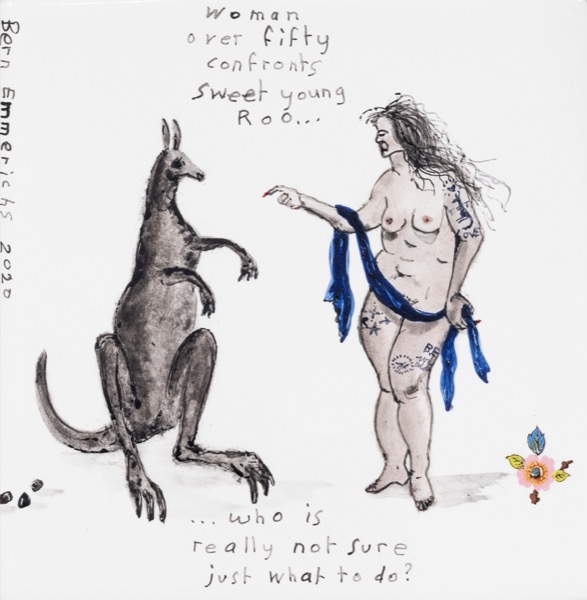 Woman
over fifty
confronts
sweet young
Roo...
...who is
really not sure
just what to do?
Bern Emmerichs 2020